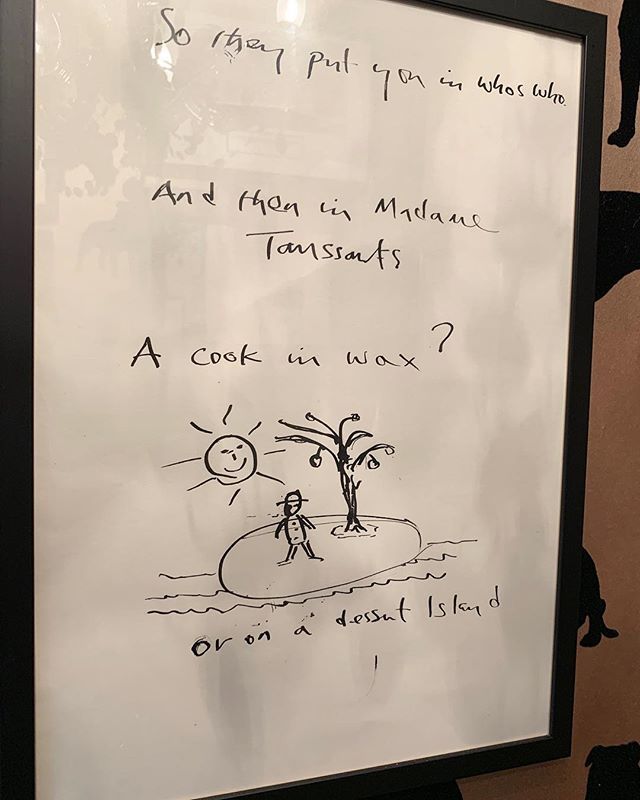 So they put you in whos who.
And then in Madame
Taussauts
A cook in wax?
or on a dessert Island